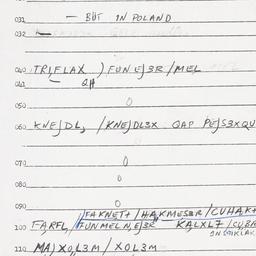 031 — BUT IN POLAND
032
040 TRIFLAX ) FUNEJ3R/MEL
041 QA
050 0
060 KNEJDL, /KNEJDL3X QAP PEJS3XQU
070 0
080 0
090 0
/FAKNET+/HAKMES3R/CUHAK+
100 FARFL, /FUNMELN,EJ3R KALXL7 /CUBR
110 MA)X0L3M / X0L3M